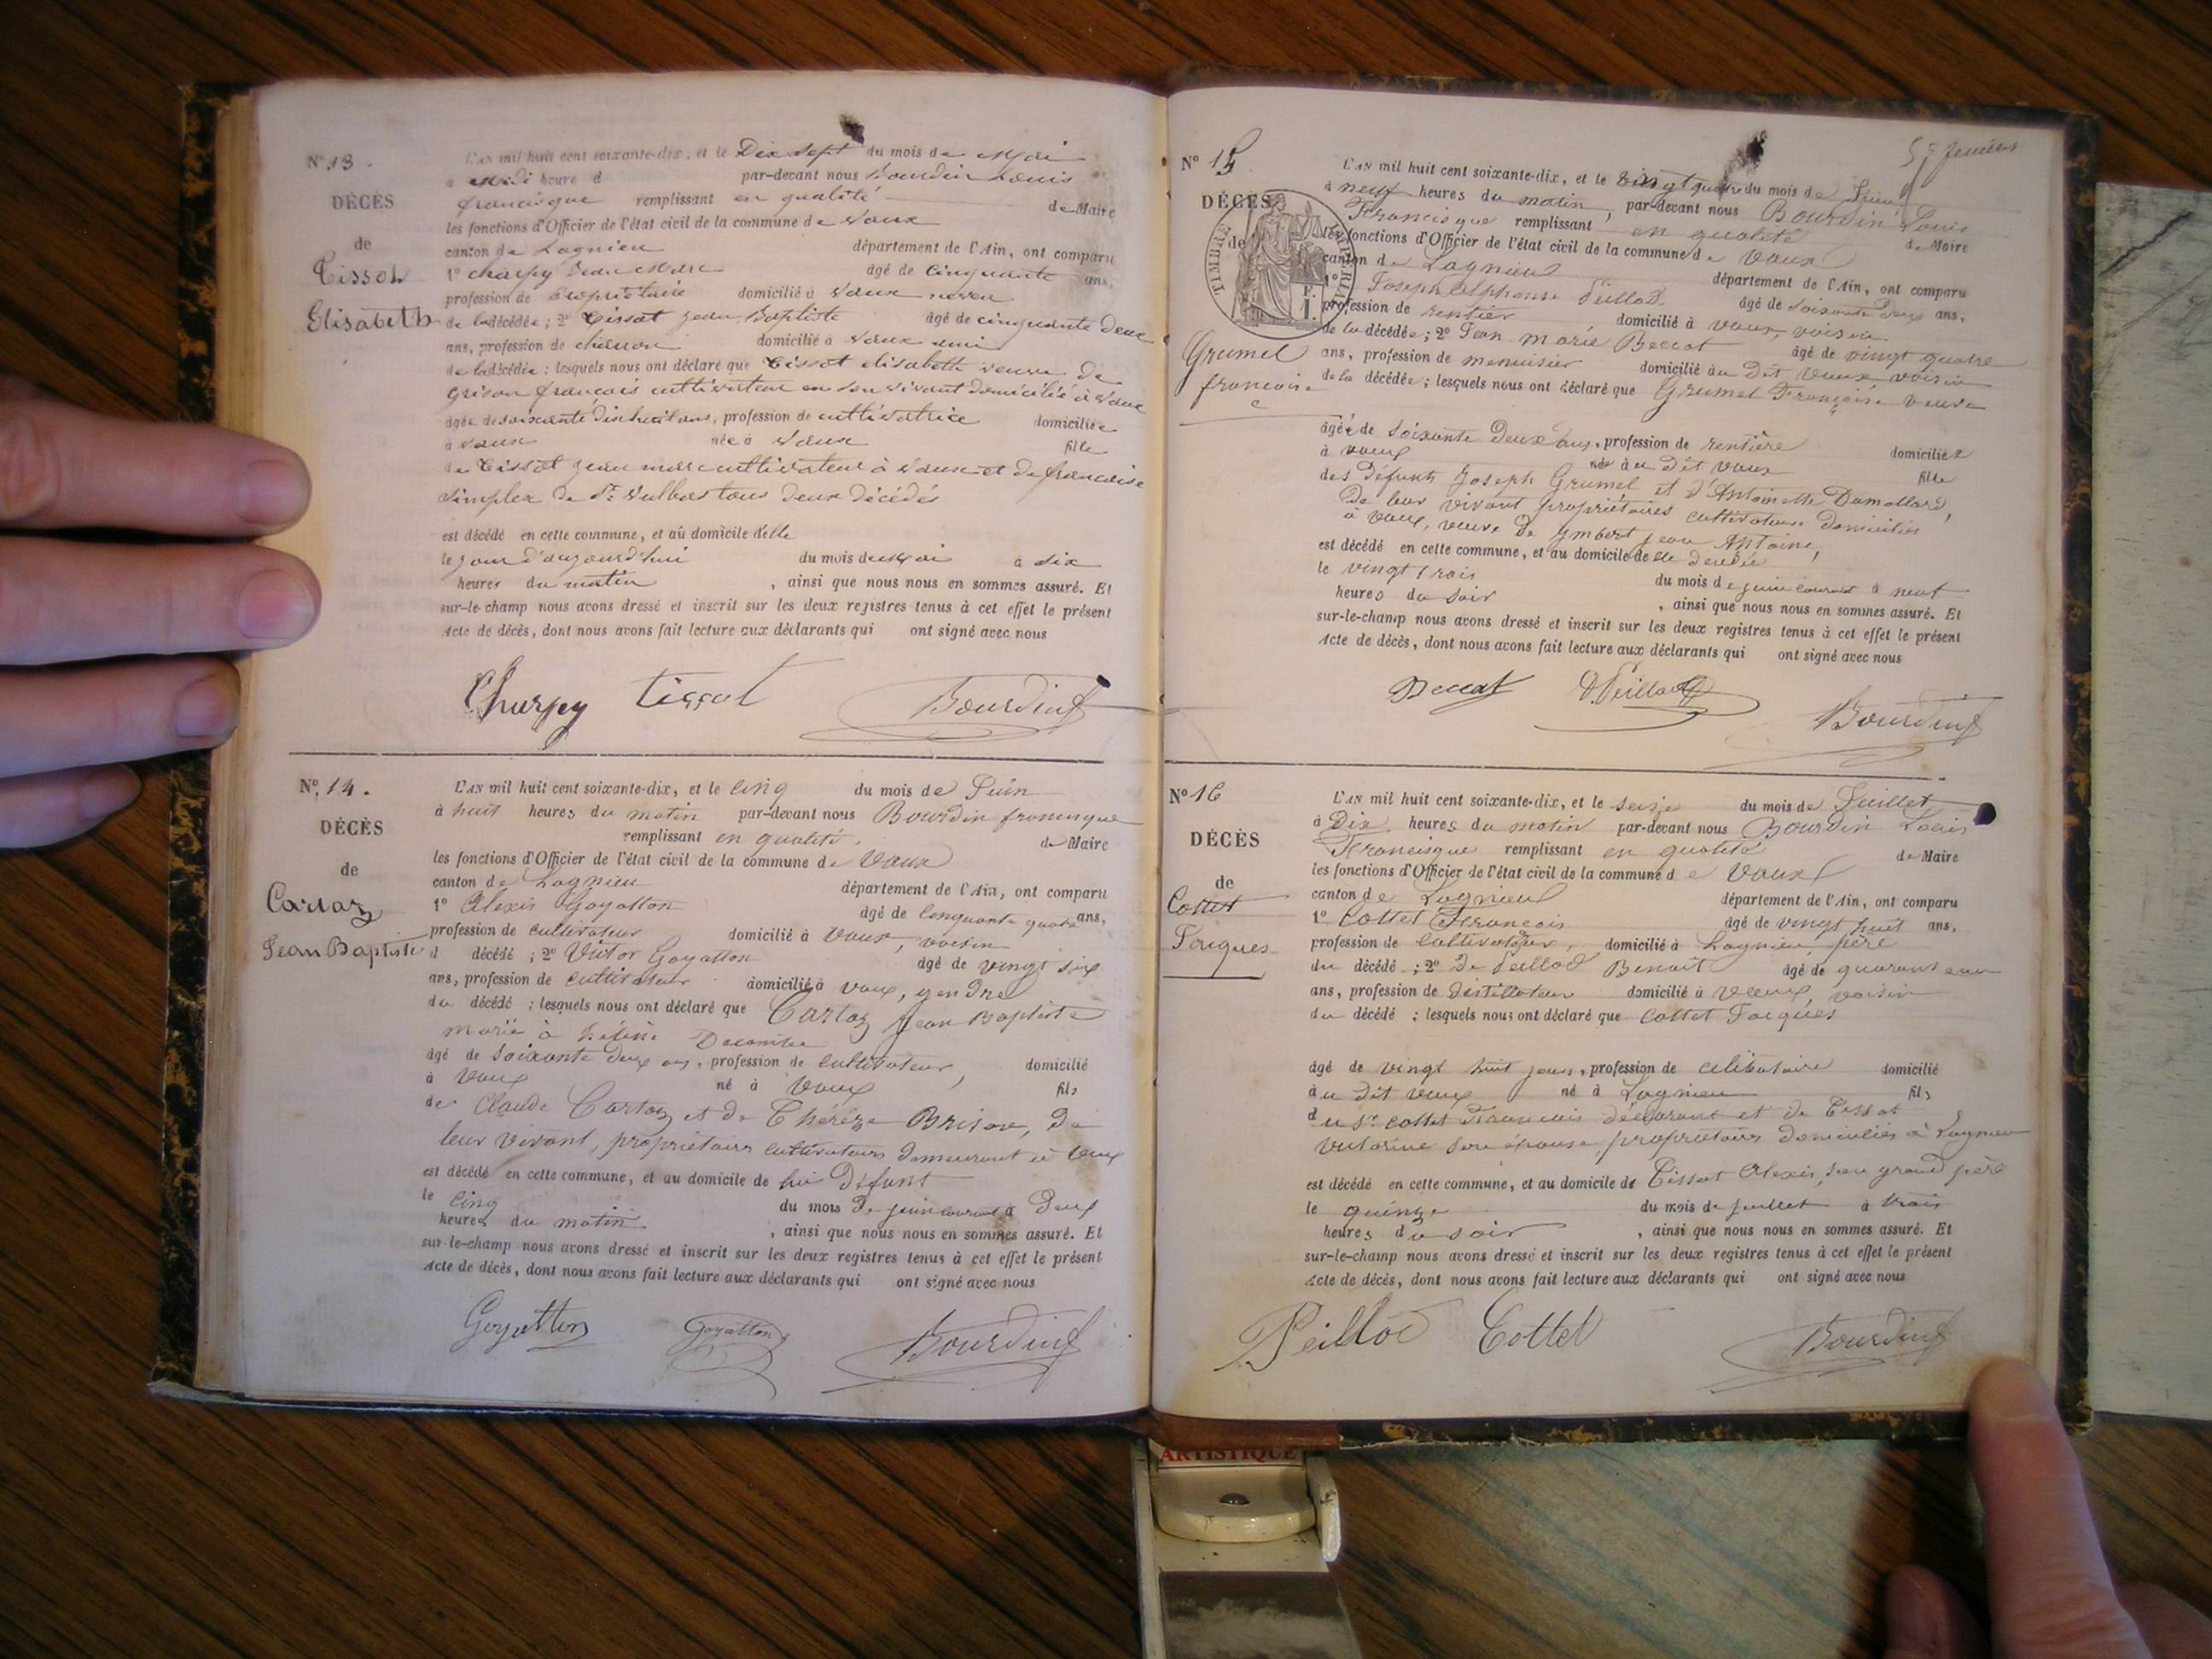 N° 13.
DÉCÈS
de
Tissot
Elisabeth
L'AN mil huit cent soixante-dix, et le Dix sept du mois de Mai
à Midi heure d par-devant nous Bourdin Louis
francisque remplissant en qualité de Maire
les fonctions d'Officier de l'état civil de la commune de Vaux
canton de Lagnieu département de l'Ain, ont comparu
1° charpy Jean Marc âgé de cinquante ans,
profession de propriétaire domicilié à Vaux neveu
de la décédée ; 2° Tissot Jean Baptiste âgé de cinquante deux
ans, profession de charron domicilié à Vaux ami
de la décédée : lesquels nous ont déclaré que Tissot elisabeth veuve de
grison françois cultivateur en son vivant domicilié à Vaux
âgée de soixante dix huit ans, profession de cultivatrice domiciliée
à Vaux née à Vaux fille
de Tissot Jean marc cultivateur à Vaux et de francoise
Simplex de St Vulbas tous deux décédés
est décédé en cette commune, et au domicile d'elle
le jour d'aujourd'hui du mois de Mai à six
heures du matin , ainsi que nous nous en sommes assuré. Et
sur-le-champ nous avons dressé et inscrit sur les deux registres tenus à cet effet le présent
Acte de décès, dont nous avons fait lecture aux déclarants qui ont signé avec nous
Charpy Tissot Bourdin f
N° 14.
DÉCÈS
de
Cartaz
Jean Baptiste
L'AN mil huit cent soixante-dix, et le cinq du mois de Juin
à huit heures du matin par-devant nous Bourdin francisque
remplissant en qualité de Maire
les fonctions d'Officier de l'état civil de la commune de Vaux
canton de Lagnieu département de l'Ain, ont comparu
1° Alexis Goyatton âgé de cinquante quatre ans,
profession de cultivateur domicilié à Vaux, voisin
d décédé ; 2° Victor Goyatton âgé de vingt six
ans, profession de cultivateur domicilié à vaux, gendre
du décédé : lesquels nous ont déclaré que Cartaz Jean Baptiste
marié à
âgé de soixante deux ans, profession de cultivateur, domicilié
à Vaux né à Vaux fils
de Claude Cartaz et de Thérèze Brison, de
leur vivant, propriétaires cultivateurs demeurant à Vaux
est décédé en cette commune, et au domicile de lui défunt
le cinq du mois de juin courant à Deux
heures du matin , ainsi que nous nous en sommes assuré. Et
sur-le-champ nous avons dressé et inscrit sur les deux registres tenus à cet effet le présent
Acte de décès, dont nous avons fait lecture aux déclarants qui ont signé avec nous
Goyatton Goyatton Bourdin f
N° 15
DÉCÈS
de
TIMBRE IMPERIAL
F. 1.
Grumel
francoise
L'AN mil huit cent soixante-dix, et le vingt quatre du mois de Juin
à neuf heures du matin, par-devant nous Bourdin Louis
Francisque remplissant en qualité de Maire
les fonctions d'Officier de l'état civil de la commune de Vaux
canton de Lagnieu département de l'Ain, ont comparu
1° Joseph Alphonse Peillod âgé de soixante Deux ans,
profession de rentier domicilié à vaux, voisin
de la décédée ; 2° Jean Marie Beccat âgé de vingt quatre
ans, profession de menuisier domicilié au dit Vaux voisin
de la décédée ; lesquels nous ont déclaré que Grumel Françoise veuve
âgée de soixante Deux ans, profession de rentière domiciliée
à vaux née au dit vaux fille
des défunts Joseph Grumel et d'Antoinette Dumollard,
de leur vivant propriétaires cultivateurs domiciliés
à vaux, veuve de Ymbert jean Antoine,
est décédé en cette commune, et au domicile de elle décédée
le vingt trois du mois de juin courant à neuf
heures du soir , ainsi que nous nous en sommes assuré. Et
sur-le-champ nous avons dressé et inscrit sur les deux registres tenus à cet effet le présent
Acte de décès, dont nous avons fait lecture aux déclarants qui ont signé avec nous
Beccat Peillod Bourdin f
N° 16
DÉCÈS
de
Cottet
Jacques
L'AN mil huit cent soixante-dix, et le seize du mois de Juillet
à Dix heures du matin par-devant nous Bourdin Louis
Francisque remplissant en qualité de Maire
les fonctions d'Officier de l'état civil de la commune de Vaux
canton de Lagnieu département de l'Ain, ont comparu
1° Cottet François âgé de vingt huit ans,
profession de cultivateur, domicilié à Lagnieu père
du décédé ; 2° de Peillod Benoit âgé de quarante un
ans, profession de distillateur domicilié à Vaux, voisin
du décédé : lesquels nous ont déclaré que Cottet Jacques
âgé de vingt huit jours, profession de célibataire domicilié
au dit vaux né à Lagnieu fils
du sr cottet François déclarant et de Tissot
Victorine son épouse, propriétaires domiciliés à Lagnieu
est décédé en cette commune, et au domicile de Tissot Alexis, son grand père
le quinze du mois de juillet à trois
heures du soir , ainsi que nous nous en sommes assuré. Et
sur-le-champ nous avons dressé et inscrit sur les deux registres tenus à cet effet le présent
Acte de décès, dont nous avons fait lecture aux déclarants qui ont signé avec nous
Peillod Cottet Bourdin f
ARTISTIQUE